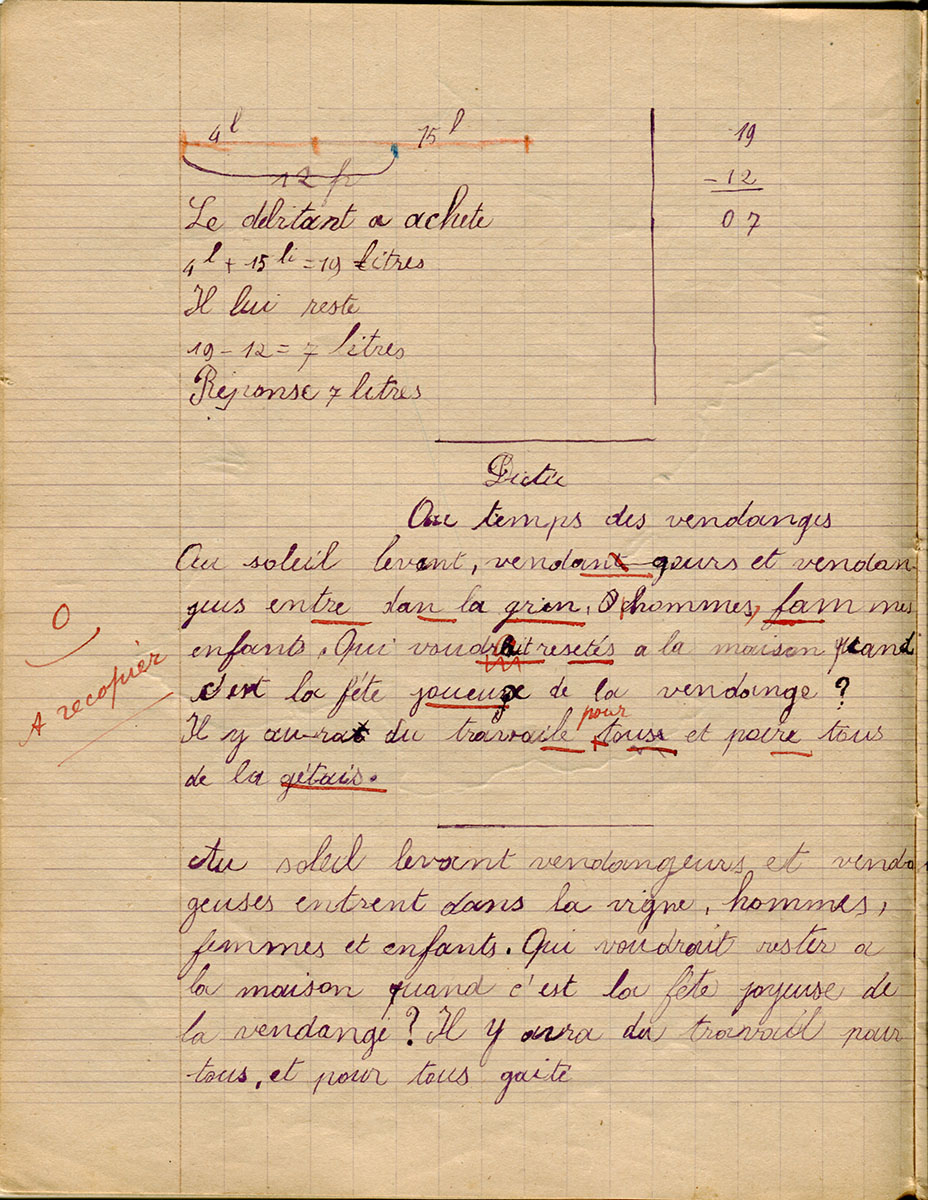 4 l 15 l
12 f
Le débitant a achete
4 l + 15 li = 19 litres
Il lui reste
19 - 12 = 7 litres
Réponse 7 litres
19
- 12
0 7
Dictée
Au temps des vendanges
Au soleil levant, vendant geurs et vendan-
geus entre dan la grin, hommes, fammes
enfants. Qui voudrait resetés a la maison quand
c'est la fête joueuse de la vendange ?
pour
Il y au-rat du travaile touse et poure tous
de la gétais.
0
A recopier
Au soleil levant vendangeurs et venda
geuses entrent dans la vigne, hommes,
femmes et enfants. Qui voudrait rester a
la maison quand c'est la fête joyeuse de
la vendange ? Il y aura du travail pour
tous, et pour tous gaité